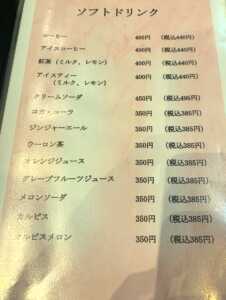 ソフトドリンク
コーヒー 400円 (税込440円)
アイスコーヒー 400円 (税込440円)
紅茶(ミルク、レモン) 400円 (税込440円)
アイスティー 400円 (税込440円)
(ミルク、レモン)
クリームソーダ 450円 (税込495円)
コカ・コーラ 350円 (税込385円)
ジンジャーエール 350円 (税込385円)
ウーロン茶 350円 (税込385円)
オレンジジュース 350円 (税込385円)
グレープフルーツジュース 350円 (税込385円)
メロンソーダ 350円 (税込385円)
カルピス 350円 (税込385円)
カルピスメロン 350円 (税込385円)